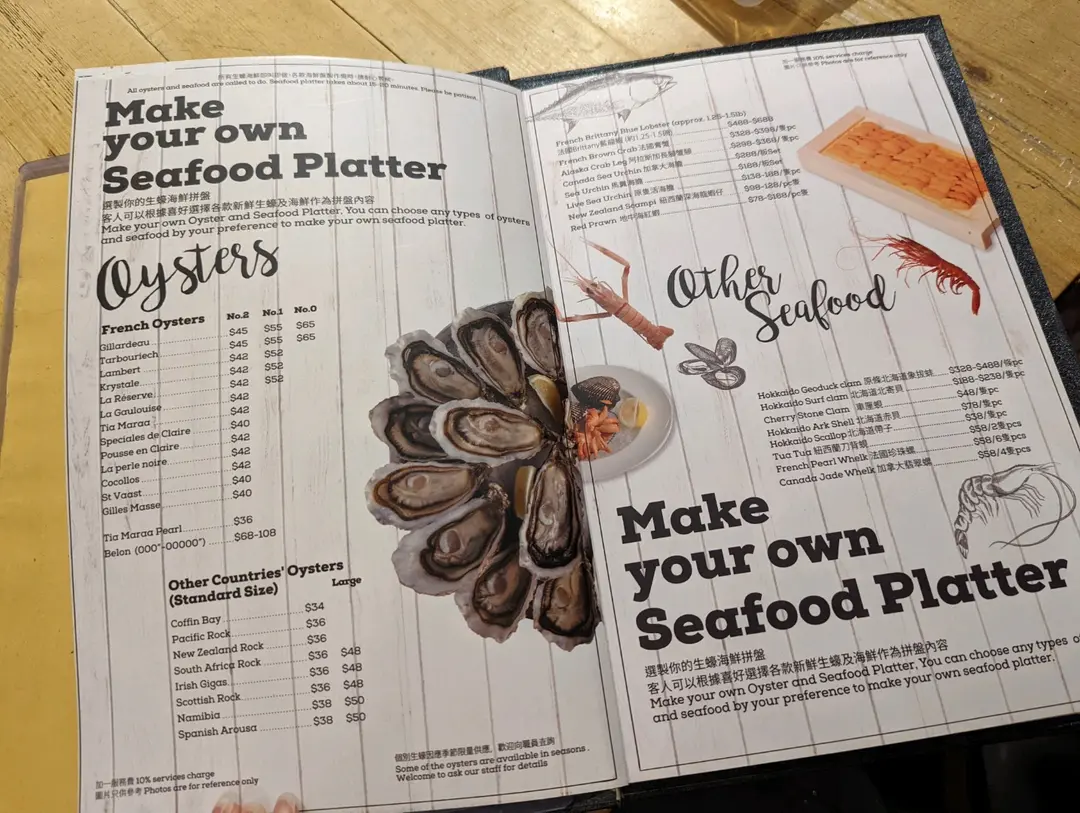 所有生蠔海鮮即叫即做,各款海鮮盤製作需時,請耐心等候。
All oysters and seafood are called to do. Seafood platter takes about 15-20 minutes. Please be patient.
Make
your own
Seafood Platter
選製你的生蠔海鮮拼盤
客人可以根據喜好選擇各款新鮮生蠔及海鮮作為拼盤內容
Make your own Oyster and Seafood Platter. You can choose any types of oysters
and seafood by your preference to make your own seafood platter.
Oysters
French Oysters No.2 No.1 No.0
Gillardeau $45 $55 $65
Tarbouriech $45 $55 $65
Lambert $42 $52
Krystale $42 $52
La Réserve $42 $52
La Gaulouise $42
Tia Maraa $42
Speciales de Claire $40
Pousse en Claire $42
La perle noire $42
Cocollos $42
St Vaast $40
Gilles Masse $40
Tia Maraa Pearl $36
Belon (000"-00000") $68-108
Other Countries' Oysters
(Standard Size) Large
Coffin Bay $34
Pacific Rock $36
New Zealand Rock $36
South Africa Rock $36 $48
Irish Gigas $36 $48
Scottish Rock $36 $48
Namibia $38 $50
Spanish Arousa $38 $50
加一服務費 10% services charge
圖片只供參考 Photos are for reference only
個別生蠔因應季節限量供應。歡迎向職員查詢
Some of the oysters are available in seasons.
Welcome to ask our staff for details
加一服務費 10% services charge
圖片只供參考 Photos are for reference only
French Brittany Blue Lobster (approx. 1.25-1.5lb) $488-$688
法國Brittany藍龍蝦 (約1.25-1.5磅)
French Brown Crab 法國膏蟹 $328-$398/隻pc
Alaska Crab Leg 阿拉斯加長腳蟹腳 $298-$368/隻pc
Canada Sea Urchin 加拿大海膽 $288/板Set
Sea Urchin 馬糞海膽 $188/板Set
Live Sea Urchin 原隻活海膽 $138-188/隻pc
New Zealand Scampi 紐西蘭深海龍蝦仔 $98-128/pc隻
Red Prawn 地中海紅蝦 $78-$168/隻pc
Other
Seafood
Hokkaido Geoduck clam 原條北海道象拔蚌 $328-$488/條pc
Hokkaido Surf clam 北海道北寄貝 $188-$238/隻pc
Cherry Stone Clam 車厘蜆 $48/隻pc
Hokkaido Ark Shell 北海道赤貝 $78/隻pc
Hokkaido Scallop 北海道帶子 $38/隻pc
Tua Tua 紐西蘭刀背蜆 $58/2隻pcs
French Pearl Whelk 法國珍珠螺 $58/6隻pcs
Canada Jade Whelk 加拿大翡翠螺 $58/4隻pcs
Make
your own
Seafood Platter
選製你的生蠔海鮮拼盤
客人可以根據喜好選擇各款新鮮生蠔及海鮮作為拼盤內容
Make your own Oyster and Seafood Platter. You can choose any types
and seafood by your preference to make your own seafood platter.